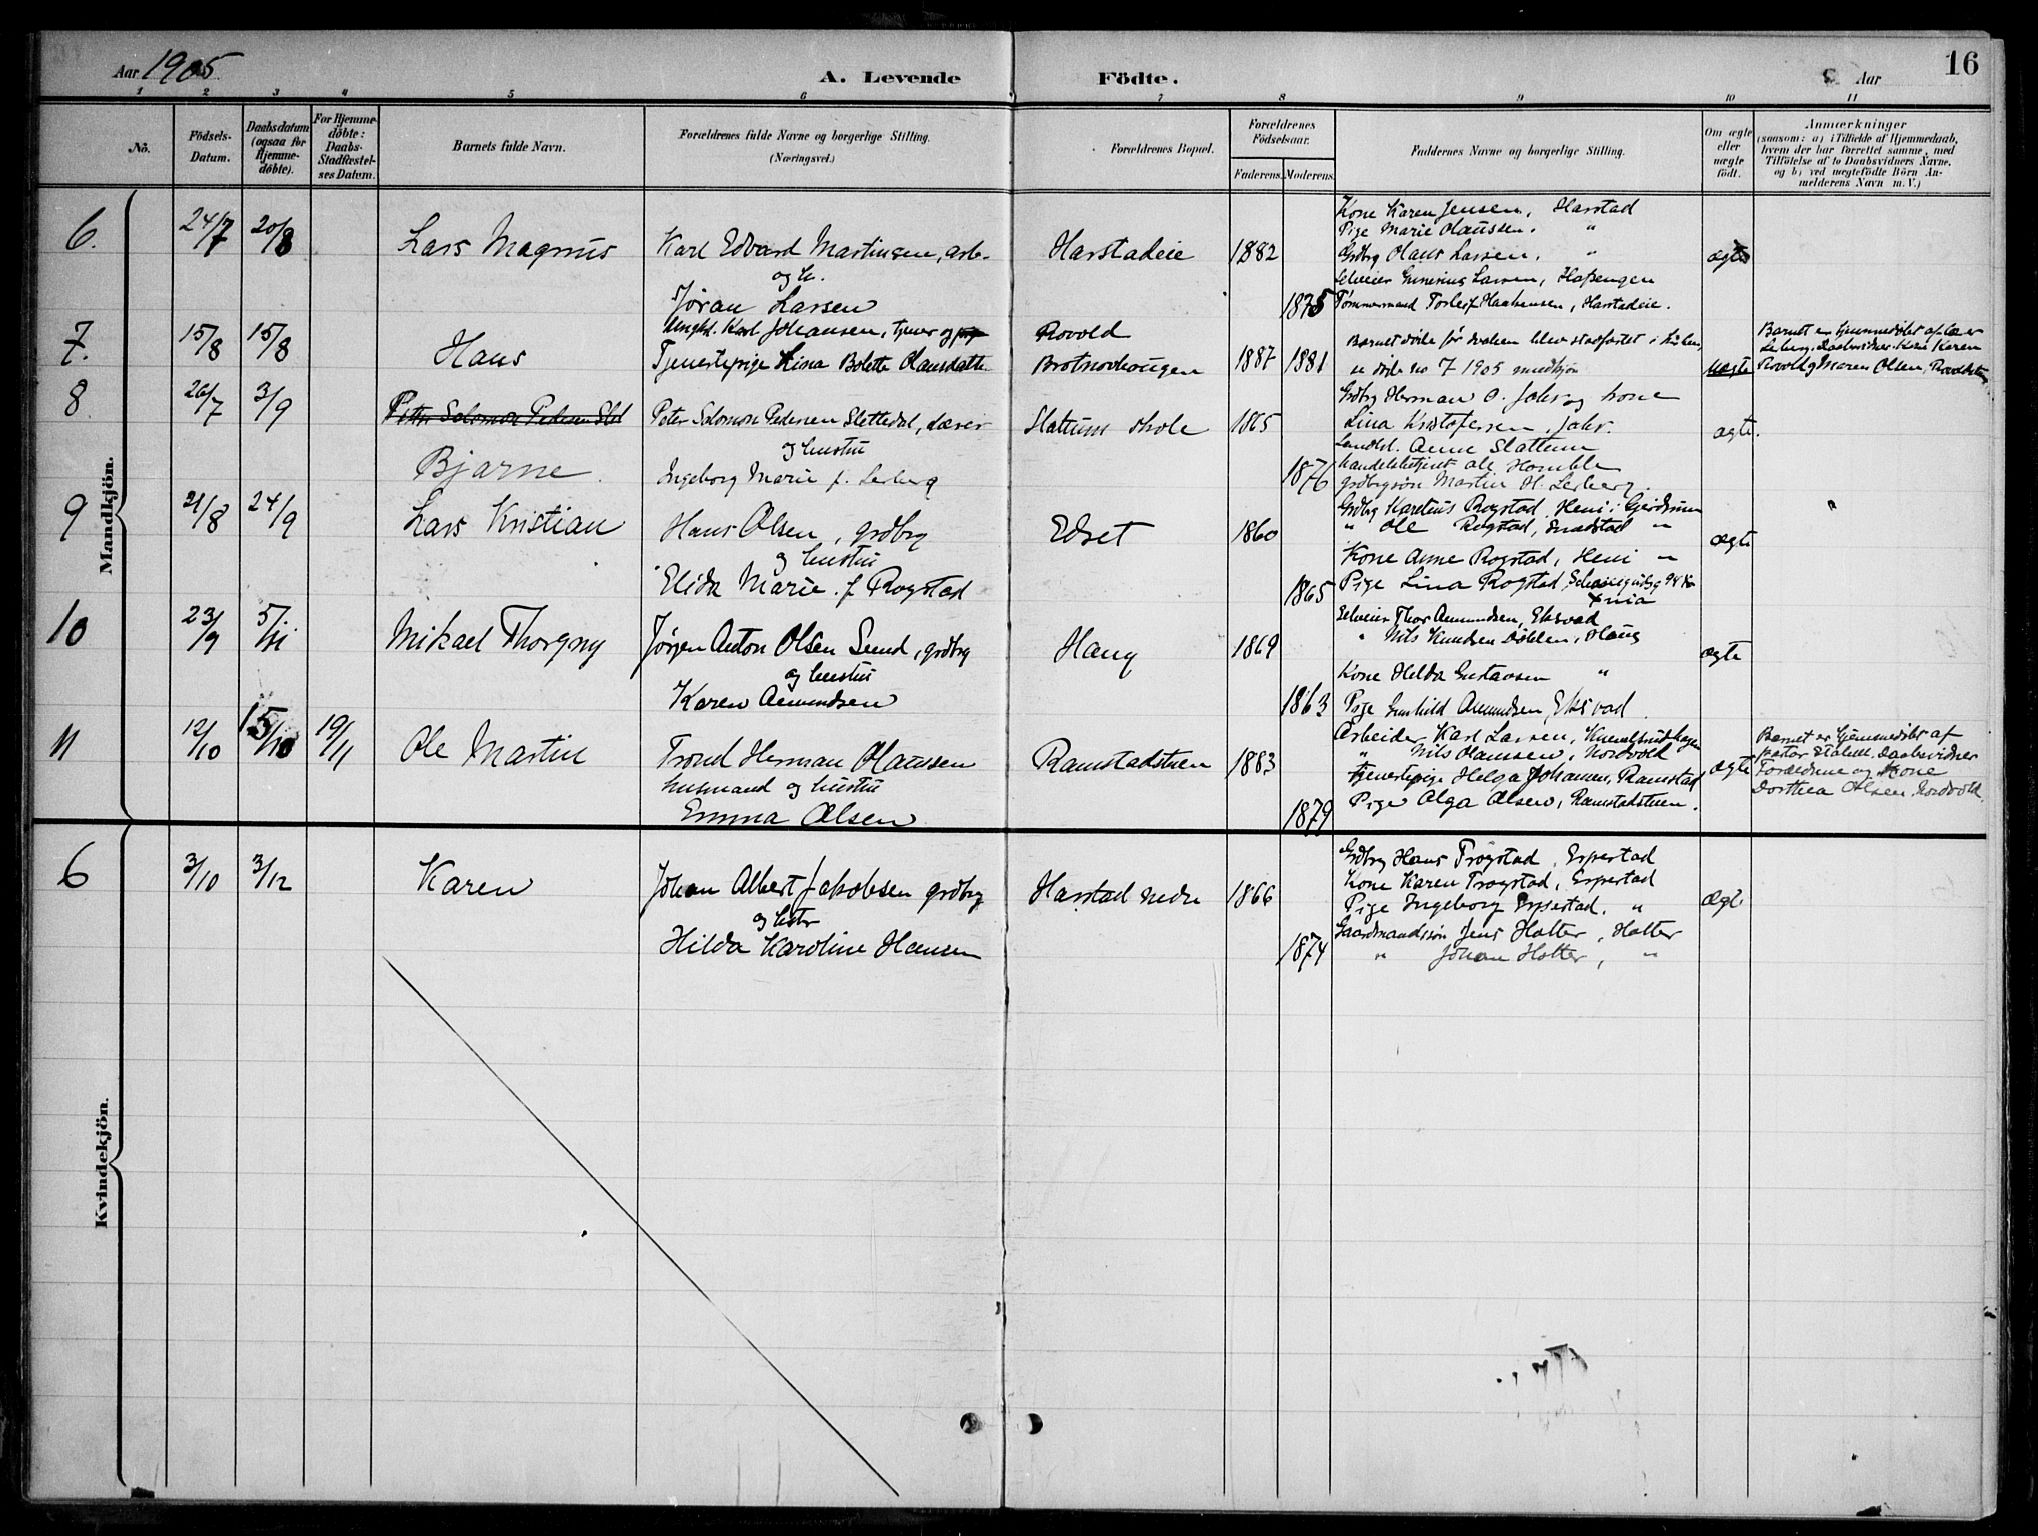 Aar 1905
A. Levende Födte.
Aar
16
1 2 3 4 5 6 7 8 9 10 11
No.
Födsels-Datum.
Daabsdatum (ogsaa for Hjemme-döbte).
For Hjemme-döbte: Daabs-Stadfæstel-ses Datum.
Barnets fulde Navn.
Forældrenes fulde Navne og borgerlige Stilling. (Næringsvei.)
Forældrenes Bopæl.
Forældrenes Födselsaar.
Faderens. Moderens.
Faddernes Navne og borgerlige Stilling.
Om ægte eller uægte født.
Anmærkninger
(saasom: a) i Tilfælde af Hjemmedaab, hvem der har forrettet samme, med Tilföielse af to Daabsvidners Navne, og b) ved uægtefödte Börn An-melderens Navn m. V.)
Mandkjön.
6. 24/7 20/8 Lars Magnus
Karl Edvard Martinsen, arb.
og h.
Jøran Larsen
Harstadeie 1882
1875
Kone Karen Jensen, Harstad
Pige Marie Olaussen. "
Grdbrg Olaus Larsen, "
Selveier Gunerius Larsen,
Tømmermand Torleif Haakensen, Harstadeie.
ægte
7. 15/8 15/8 Hans
Ungkl. Karl Johansen, tjener og
Tjenestepige Lina Bolette Olausdatter
Rovold
Brotnochougen 1887 1881
Barnet døde før daaben blev stadfæstet i kirken,
se døde no 7 1905 mandkjøn
uægte
Barnet er hjemmedøbt af lærer
Leberg. Daabsvidner: Kone Karen
Rovold og Maren Olsen,
8. 26/7 3/9 Peter Salomon Pedersen Slet
Bjarne.
Peter Salomon Pedersen Slettedal, Lærer
og hustru
Ingeborg Marie f. Leberg
Slattum skole 1865
1876
Grdbrg Herman O. Jahr og kone
Lina Kristofersen Jahr.
Landhl. Anne Slattum
Handelsbetjent Ole Homble
grdbrgsøn Martin H. Leberg.
ægte.
9 21/8 24/9 Lars Kristian
Hans Olsen, grdbrg
og hustru
Elida Marie f. Rogstad
Edset 1860
1865
Grdbrg Karelius Rogstad, Heni i Gjerdrum
" Ole Rogstad, "
Kone Anne Rogstad, Heni "
Pige Lina Rogstad,
Xnia
ægte
"
10 23/9 5/11 Mikael Thorgny
Jørgen Anton Olsen Sund, grdbrg
og hustru
Karen Amundsen
Haug 1869
1863
Selveier Thor Amundsen, Eksvad
" Nils Knudsen Døhlen, Haug
Kone Helda Gustavsen "
Pige Gunhild Amundsen, Eksvad.
ægte
11 12/10 15/10 19/11 Ole Martin
Trond Herman Olaussen
husmand og hustru
Emma Olsen
Ramstadstuen 1883
1879
Arbeider Karl Larsen,
" Nils Olaussen, Nordvold
tjenestepige Helga Johansen, Ramstad
Pige Olga Olsen, Ramstadstuen.
ægte
Barnet er hjemmedøbt af
pastor Daabsvidner
Forældrene og Kone
Dorthea Olsen Nordvold.
Kvindekjön.
6 3/10 3/12 Karen
Johan Albert Jakobsen grdbrg
og hstr
Hilda Karoline Hansen
Harstad nedre 1866
1874
Grdbrg Hans Trøgstad, Erpestad
Kone Karen Trogstad, Erpestad
Pige Ingeborg Erpestad. "
Gaardmandssøn Jens Holter, Holter
" Johan Holter, "
ægte